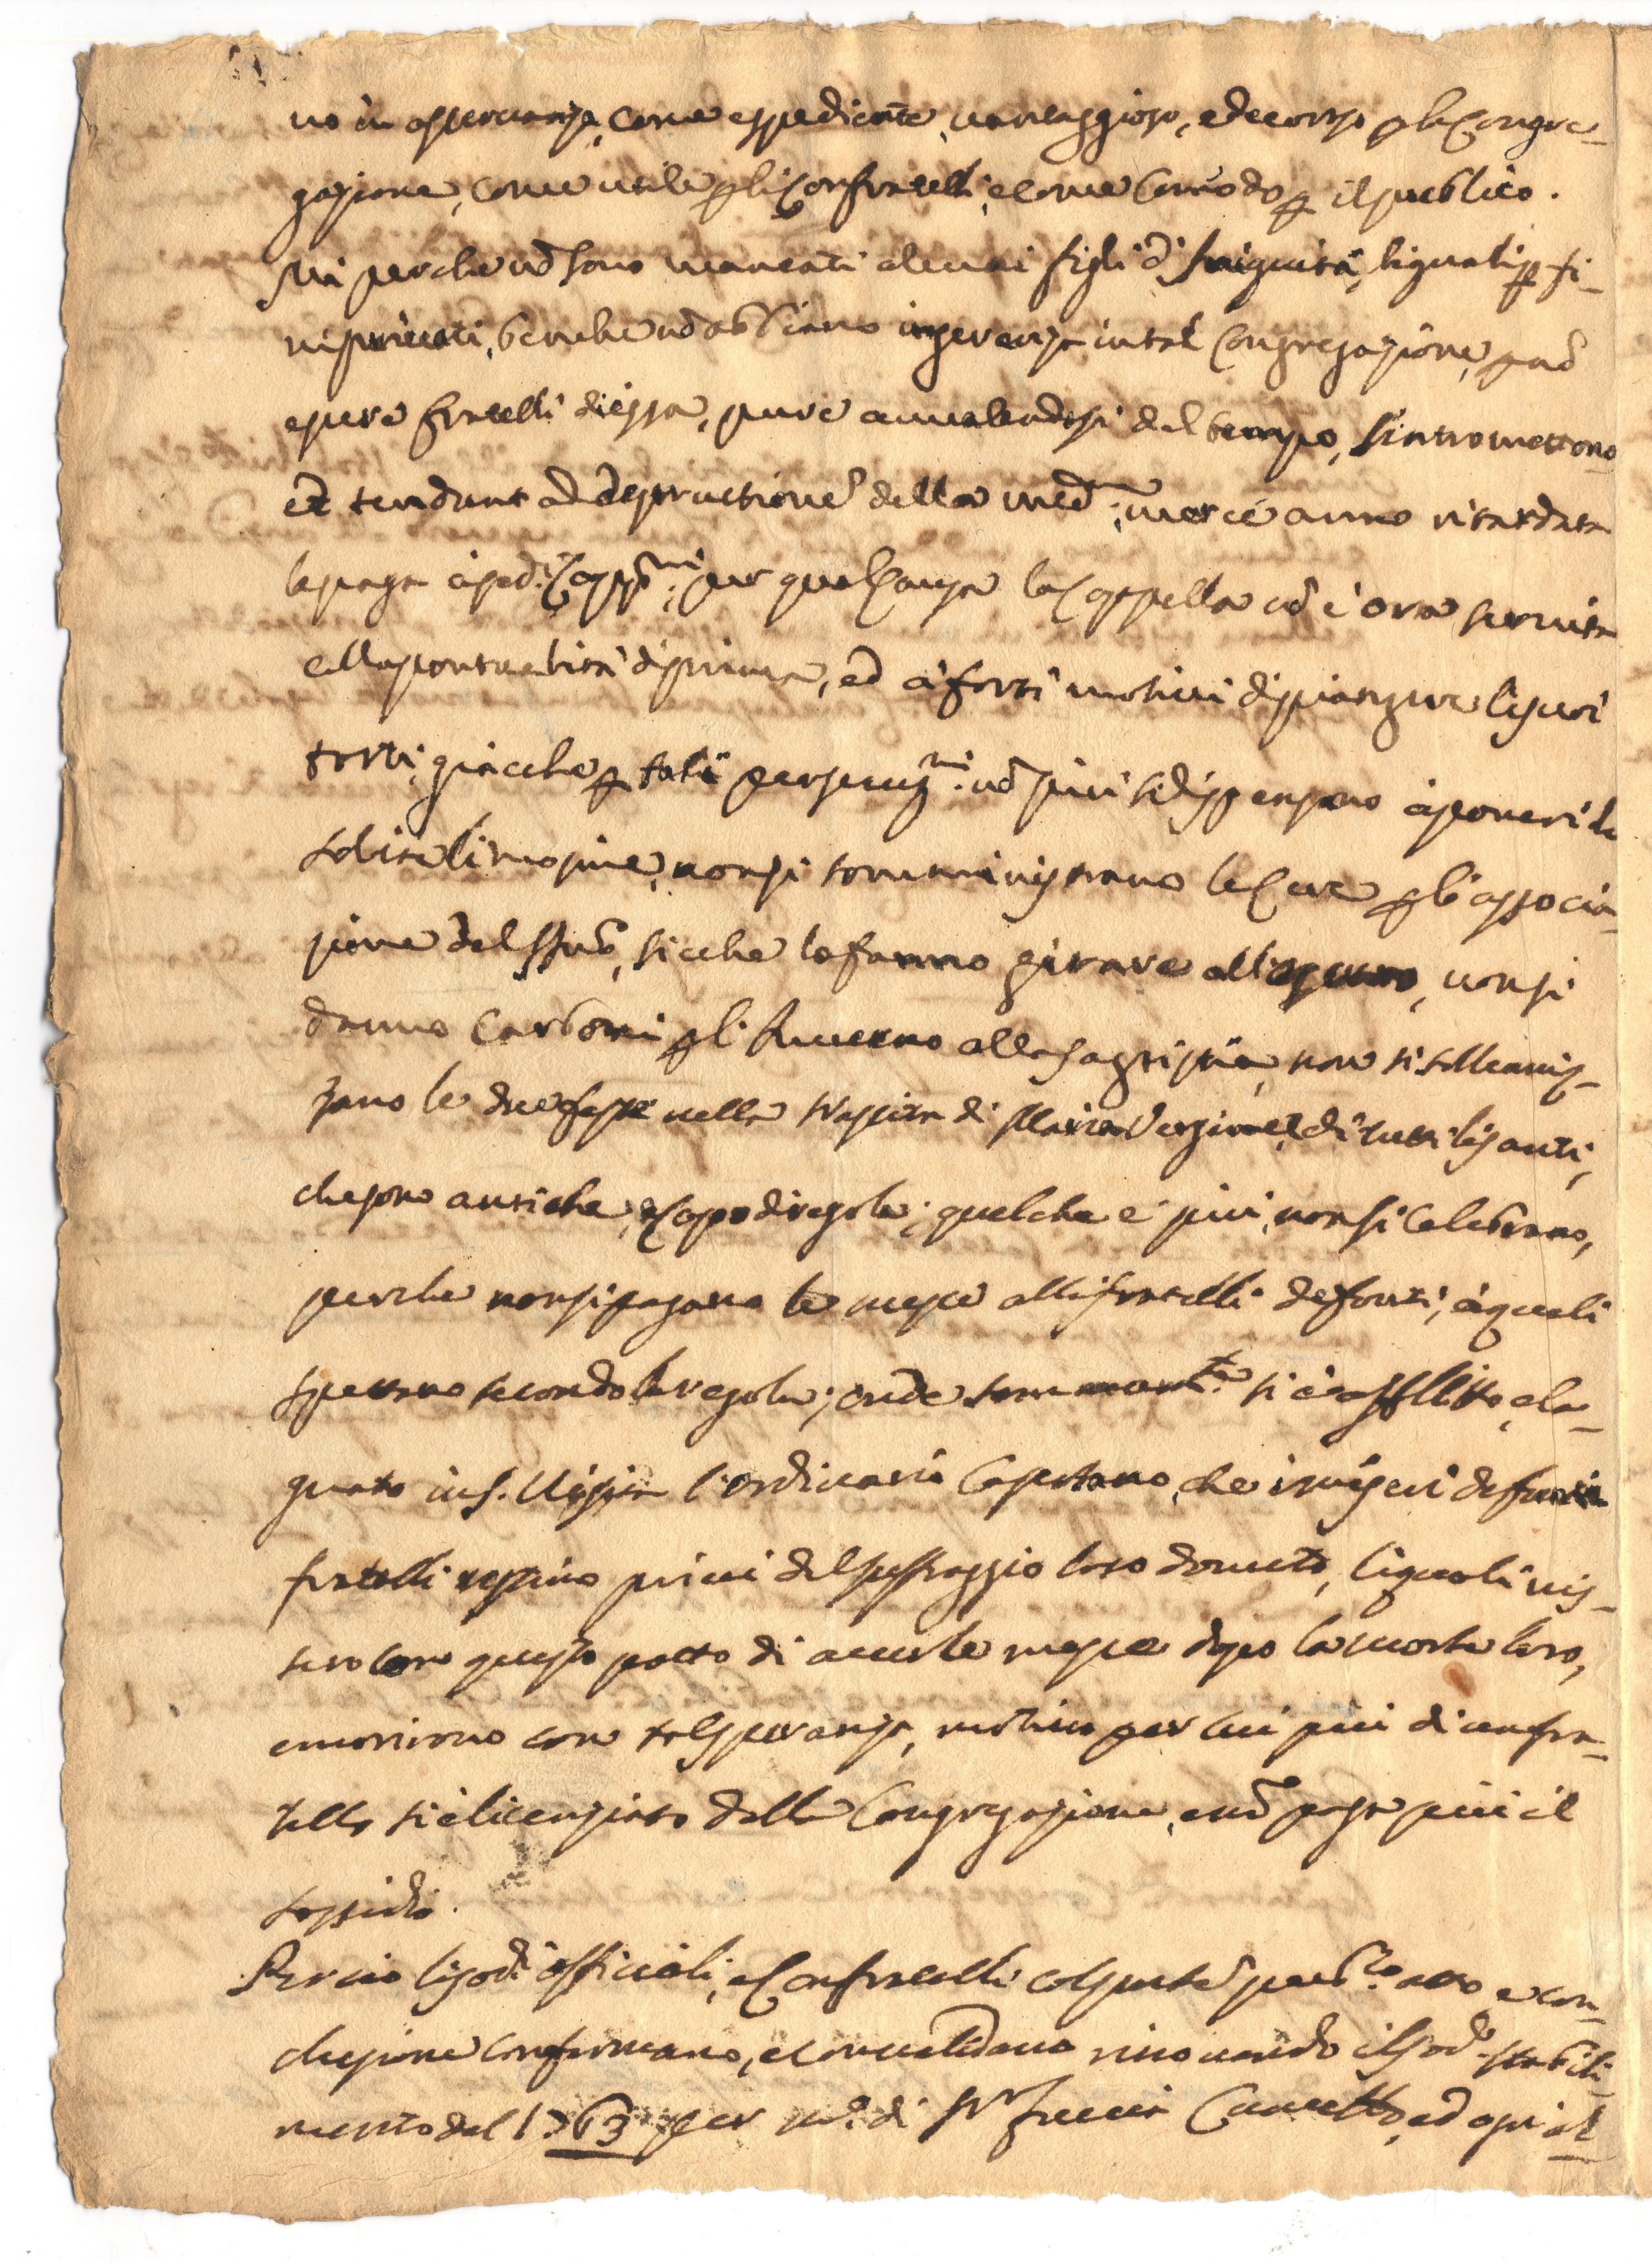 no in osservanza, come espediente, vantaggioso, e decorso p la Congre-
gazione, come utile p li Confratelli, e come comodo p il publico.
Ma perche nō sono mancati alcuni figli d'iniquità, li quali p fi-
ni privati, benche nō abbiano ingerenza in tal Congregazione, p nō
essere fratelli di essa, pure avvalendosi del tempo, s'intromettono
et tendunt ad destructionē della med.: mercè anno ritardata
la paga à sod.i Capp.ni: per qual causa la Cappella nō è ora servita
colla pontualità di prima, ed à forti motivi di piangere li suoi
torti; giacche p tali persecuz.ni: nō più si dispensano à poveri le
solite limosine, non si somministrano le Cere p l'associa-
zione del SSmō, sicche lo fanno girare all'oscuro, non si
danno Carboni p l'Inverno alla Sagristia, non si sollenniz-
zano le due feste nella Nascita di Maria Vergine, e di tutti li Santi,
che sono antiche, e Capo di regola; quel che è più, non si celebrano,
perche non si pagano le messe alli fratelli defonti, à quali
spettano secondo le regole; onde sommam.te si è afflitto, e la-
gnato in S. Visita l'ordinario Capertano, che i miseri defunti
fratelli restino privi del suffraggio loro dovuto, li quali vis-
sero con questo patto di avere le messe dopo la morte loro,
e morirono con tal speranza, motivo per cui più di un fra-
tello si è licenziato dalla Congregazione, e nō paga più il
sossidio.
Per cio li sod.i officiali, e Confratelli col pnte pub.co atto e con-
clusione confermano, e convalidano rinovando il sod.o stabili-
mento del 1763 per N.r di N.r Ciccio Cannetto, ed ogni al-